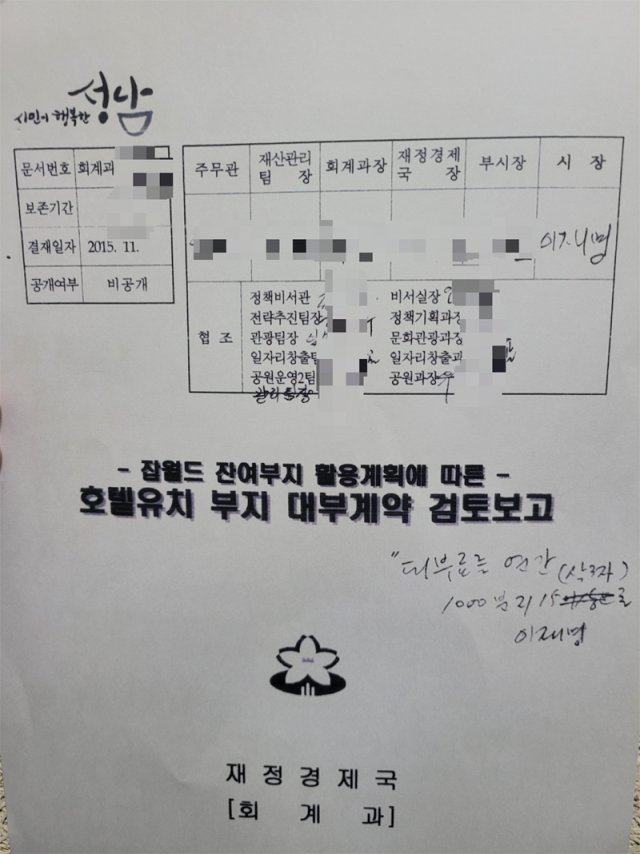 시민이 행복한 성남
문서번호 회계과
보존기간
결재일자 2015. 11.
공개여부 비공개
주무관 재산관리팀장 회계과장 재정경제국장 부시장 시장
이재명
협조
정책비서관 비서실장
전략추진팀장 정책기획과장
관광팀장 문화관광과장
일자리창출팀 일자리창출과
공원운영2팀 공원과장
- 잡월드 잔여부지 활용계획에 따른 -
호텔유치 부지 대부계약 검토보고
"대부료를 연간 (삭제)
1000분의 15로
이재명
재정경제국
[회계과]